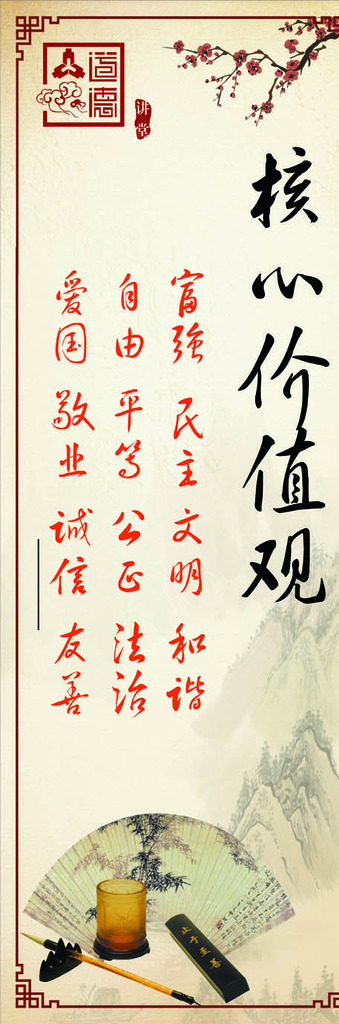 道德
讲堂
核心价值观
富强 民主 文明 和谐
自由 平等 公正 法治
爱国 敬业 诚信 友善
止于至善